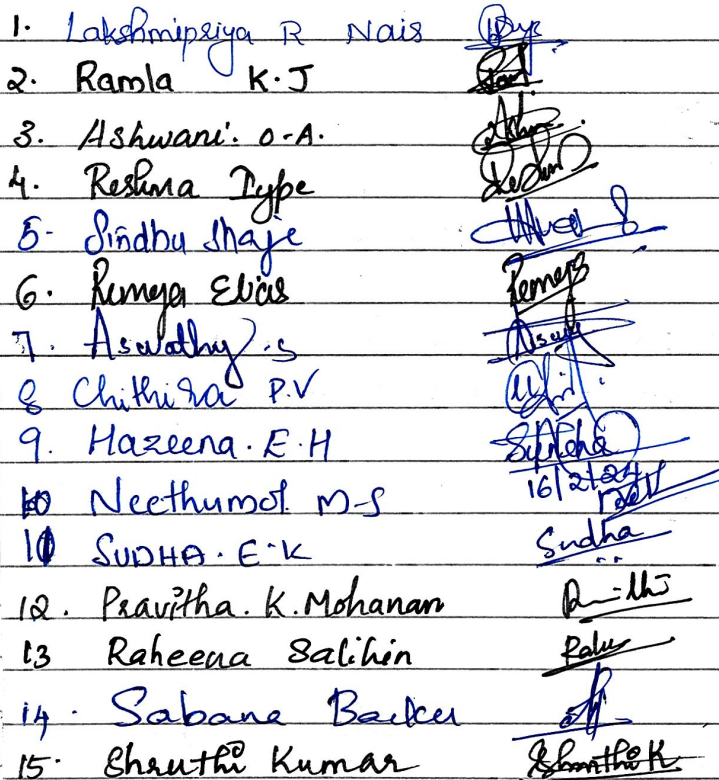 1. Lakshmipriya R Nair
2. Ramla K.J
3. Ashwani. O.A.
4. Reshma Iype
5- Sindhu Shaje
6. Remya Elias
7. Aswathy.S
8 Chithira P.V
9. Hazeena.E.H
16/2/24
10 Neethumol M-S
11 SUDHA.E.K Sudha
12. Pravitha.K.Mohanan
13 Raheena Salihin
14. Sabana Backer
15. Shruthi Kumar Shruthi K.